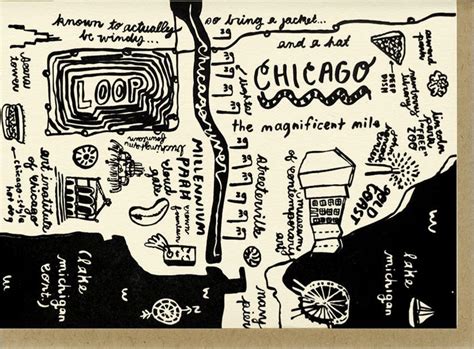 known to actually
be windy...
so bring a jacket...
and a hat
CHICAGO
the magnificent mile
LOOP
sears
tower
chicago river
MILLENNIUM
PARK
cloud
gate
crown
fountain
buckingham
fountain
art institute
of chicago
chicago-style
hot dog
streeterville
museum
of contemporary
art
GOLD
COAST
lincoln
park
FREE
ZOO
deep
dish
navy
pier
lake
michigan
(lake
michigan
cont.)